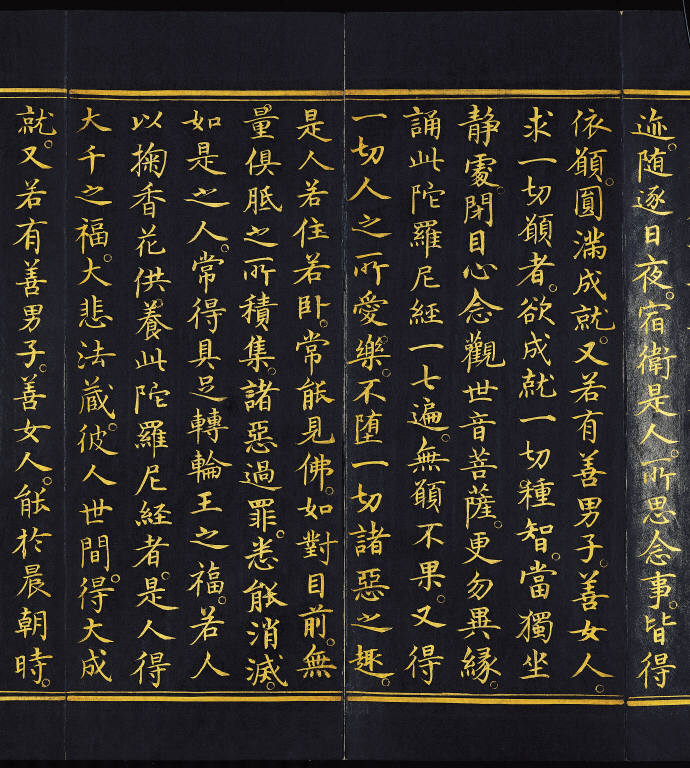 迹随逐日夜。宿衛是人。所思念事。皆得
依願。圓滿成就。又若有善男子。善女人。
求一切願者。欲成就一切種智。當獨坐
静處。閉目心念觀世音菩薩。更勿異緣。
誦此陀羅尼經一七遍。無願不果。又得
一切人之所愛樂。不堕一切諸惡之趣。
是人若住若卧。常能見佛。如對目前。無
量俱胝之所積集。諸惡過罪。悉能消滅。
如是之人。常得具足轉輪王之福。若人
以掬香花供養此陀羅尼經者。是人得
大千之福。大悲法蔵。彼人世間。得大成
就。又若有善男子。善女人。能於晨朝時。